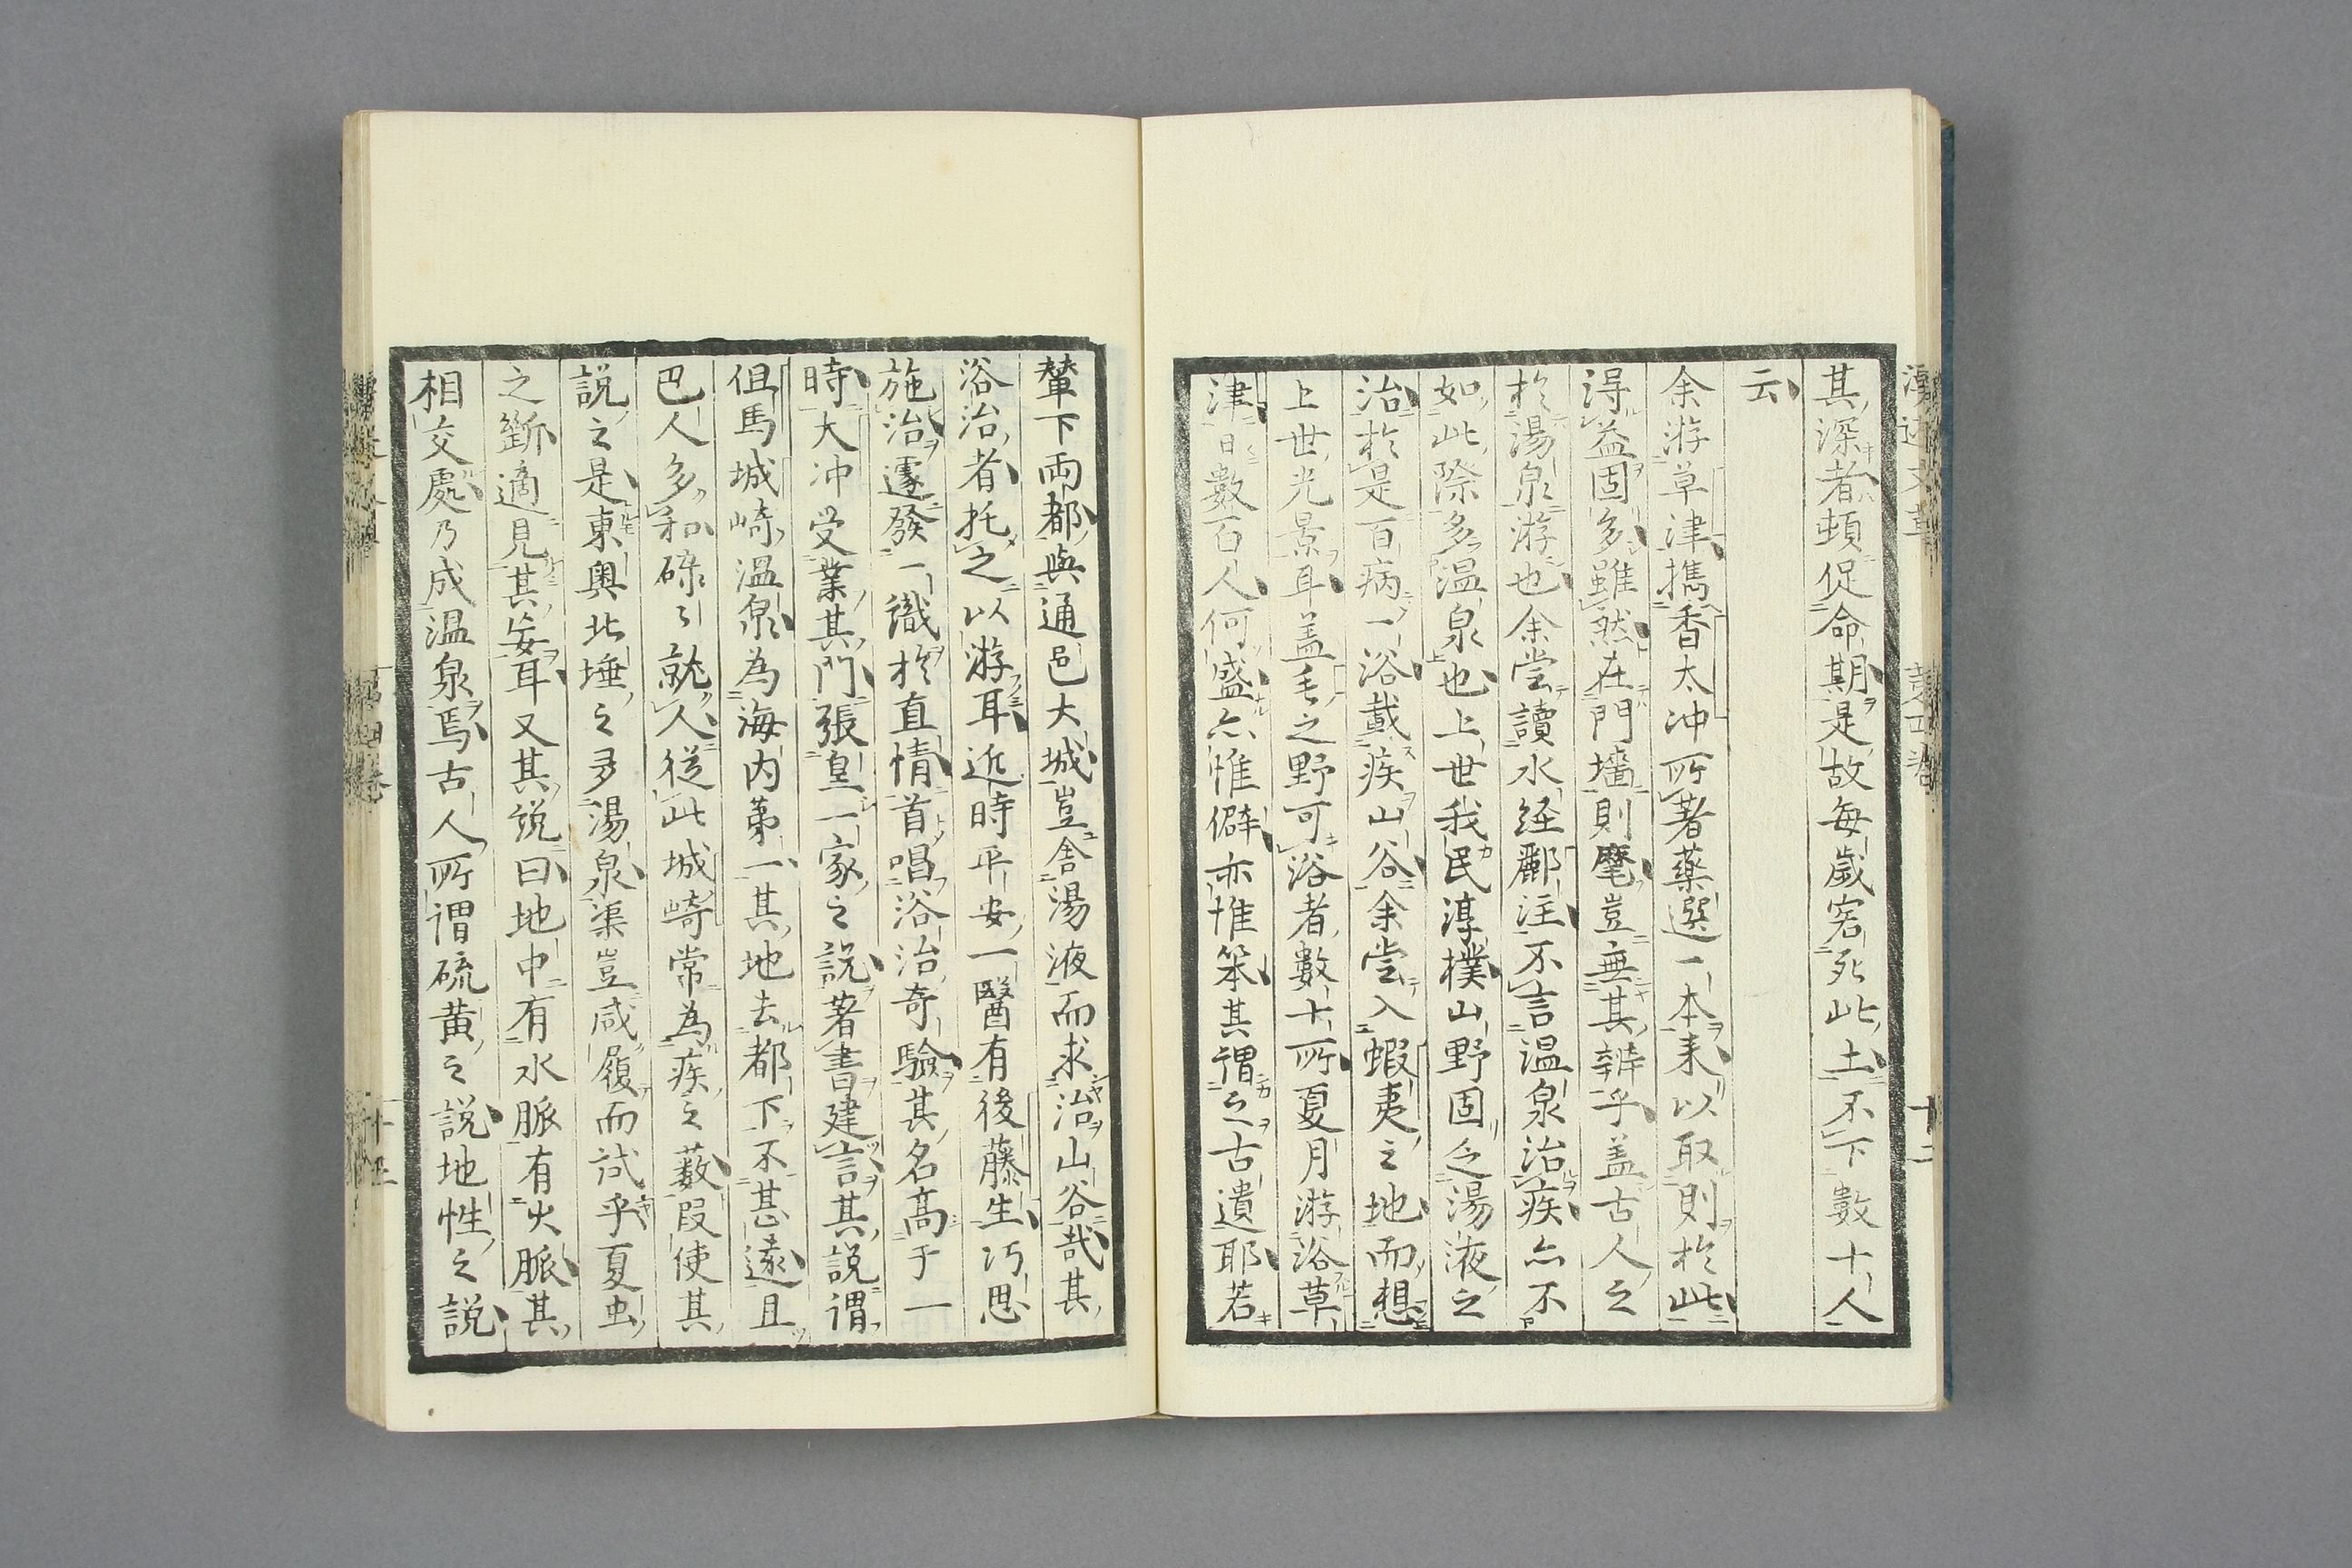 其深者頓促命期是故每歲客死此土不下數十人
云
余游草津攜香太冲所著藥選一本來以取則於此
得益固多雖然在門墻則麾豈無其辨乎盖古人之
於湯泉游也余嘗讀水經酈注不言温泉治疾亦不
如此際多温泉也上世我民淳樸山野固之湯液之
治於是百病一浴戴疾山谷余嘗入蝦夷之地而想
上世光景耳盖毛之野可浴者數十所夏月游浴草
津日數百人何盛亦惟僻亦惟笨其謂之古遺耶若
輦下両都與通邑大城豈舍湯液而求治山谷哉其
浴治者托之以游耳近時平安一醫有後藤生巧思
施治遽發一識於直情首唱浴治奇驗其名高于一
時大冲受業其門張皇一家之説著書建言其説謂
但馬城崎温泉為海内第一其地去都下不甚遠且
巴人多和碌々就人從此城崎常為疾之藪叚使其
説之是東奥北埵之多湯泉渠豈咸履而試乎夏虫
之斷適見其妄耳又其説曰地中有水脈有火脈其
相交處乃成温泉焉古人所謂硫黄之説地性之説